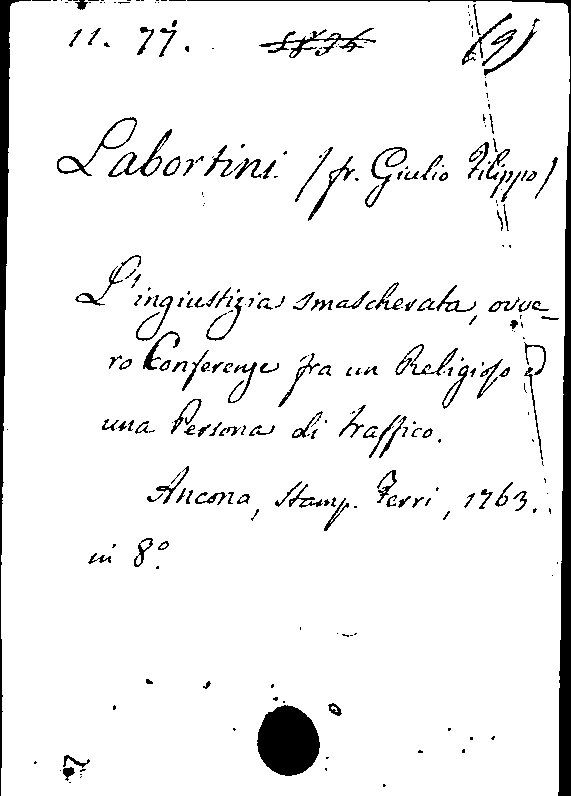 11. 77. (9)
Labortini (fr. Giulio Filippo)
L'ingiustizia smascherata, ovve-
ro Conferenze fra un Religioso ed
una Persona di traffico.
Ancona, Stamp. Ferri, 1763.
in 8.°